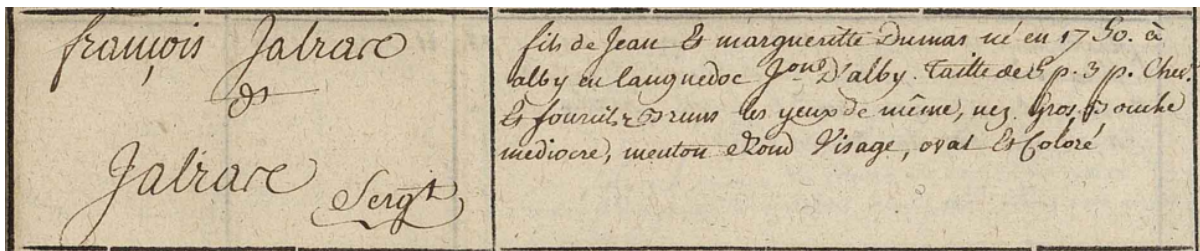 françois Jalrace
dt
Jalrace Sergt
fils de Jean & margueritte Dumas né en 1750. à
alby en languedoc Jon D'alby. Taille de 5 p. 3 p. Chev.
Et sourcils Bruns les yeux de même, nez Gros, Bouche
mediocre, menton Rond Visage, oval Et Coloré